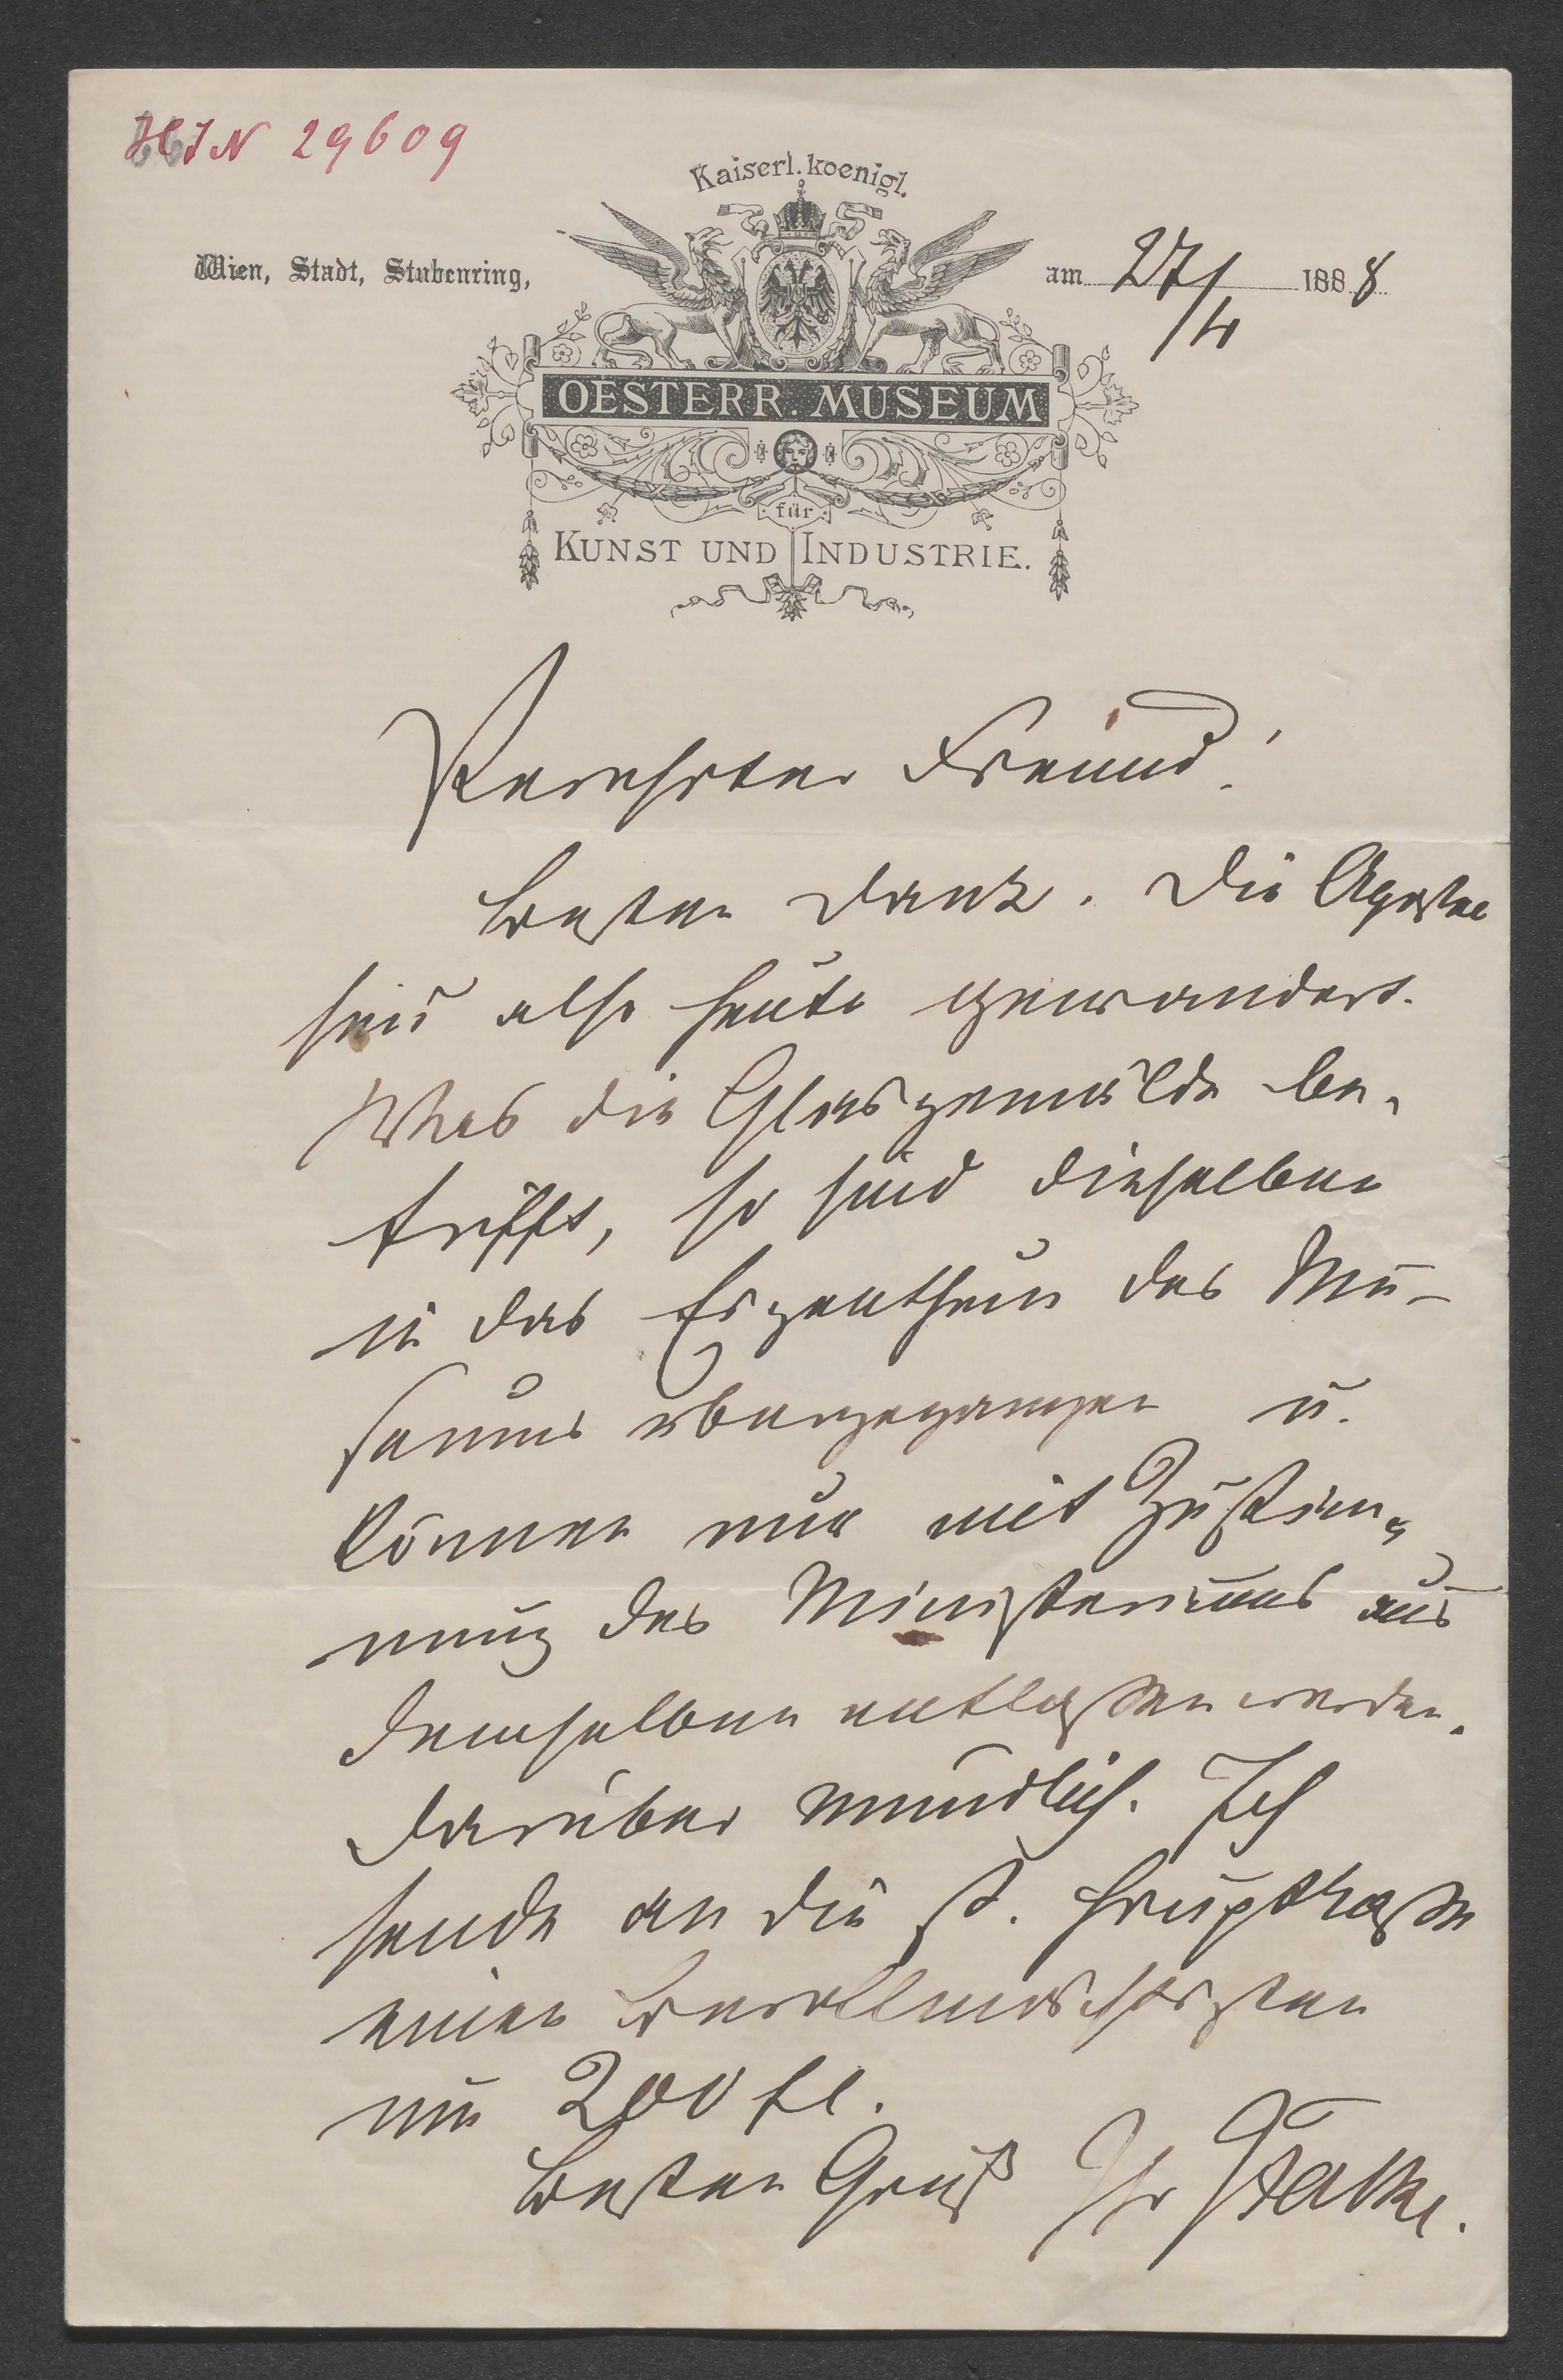 HIN 29609
Kaiserl. koenigl.
Wien, Stadt, Stubenring,
am 27/4 1888
OESTERR. MUSEUM
für
KUNST UND INDUSTRIE.
Verehrter Freund!
Besten Dank. Die Apostel
sind also heute gewandert.
Was die Glasgemälde be-
trifft, so sind dieselben
in das Eigenthum des Mu-
seums übergegangen u.
können nur mit Zustim-
mung des Ministeriums aus
demselben entlassen werden.
Darüber mündlich. Ich
sende an die st. Hauptkasse
einen Bevollmächtigten
um 200 fl.
Besten Gruß Ihr JFalke.